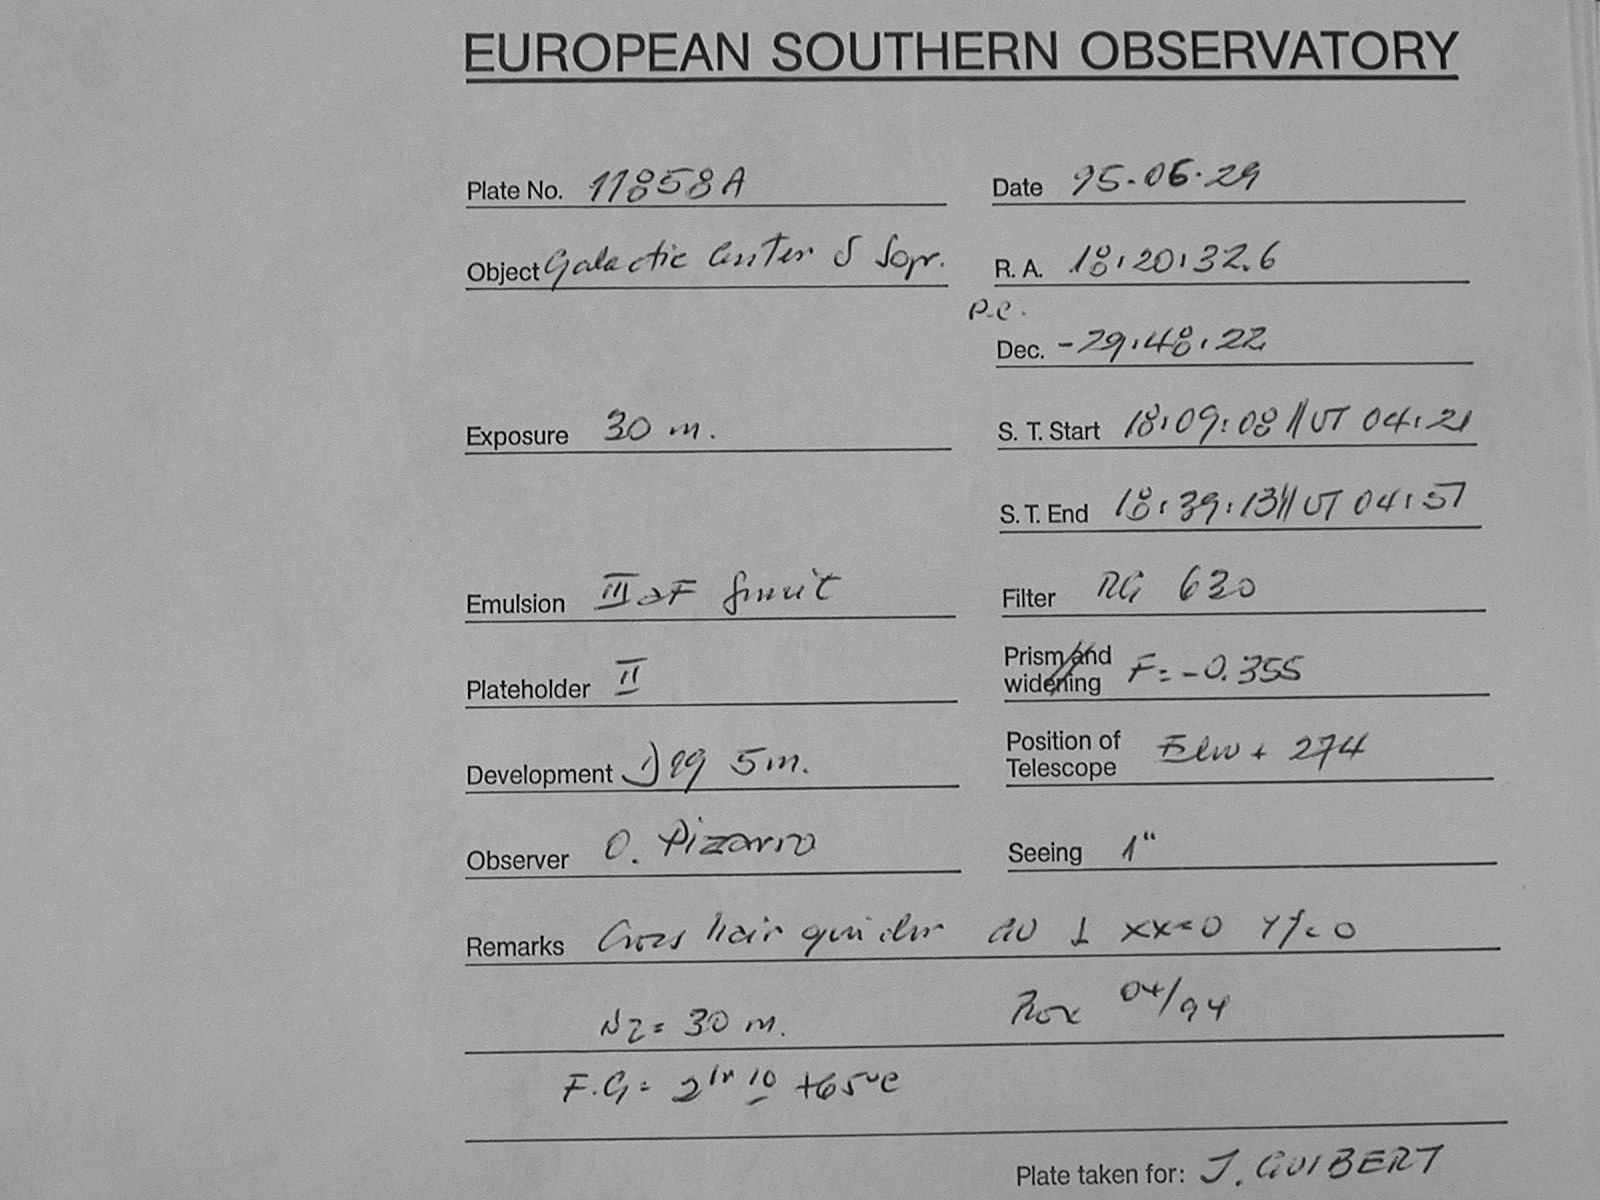 EUROPEAN SOUTHERN OBSERVATORY
Plate No. 11858A Date 95-06-29
Object Galactic Center S Sopr. R. A. 18:20:32.6
P.C.
Dec. -29:48:22
Exposure 30 m. S. T. Start 18:09:08 // UT 04:21
S. T. End 18:39:13 // UT 04:51
Emulsion III aF Filter RG 630
Plateholder II Prism and widening F=-0.355
Development D19 5m. Position of Telescope + 274
Observer O. Pizarro Seeing 1"
Remarks Cross hair guider XX=0 YY=0
N2= 30 m. Box 04/94
F.G= 2hr 10 +65°C
Plate taken for: J. GUIBERT